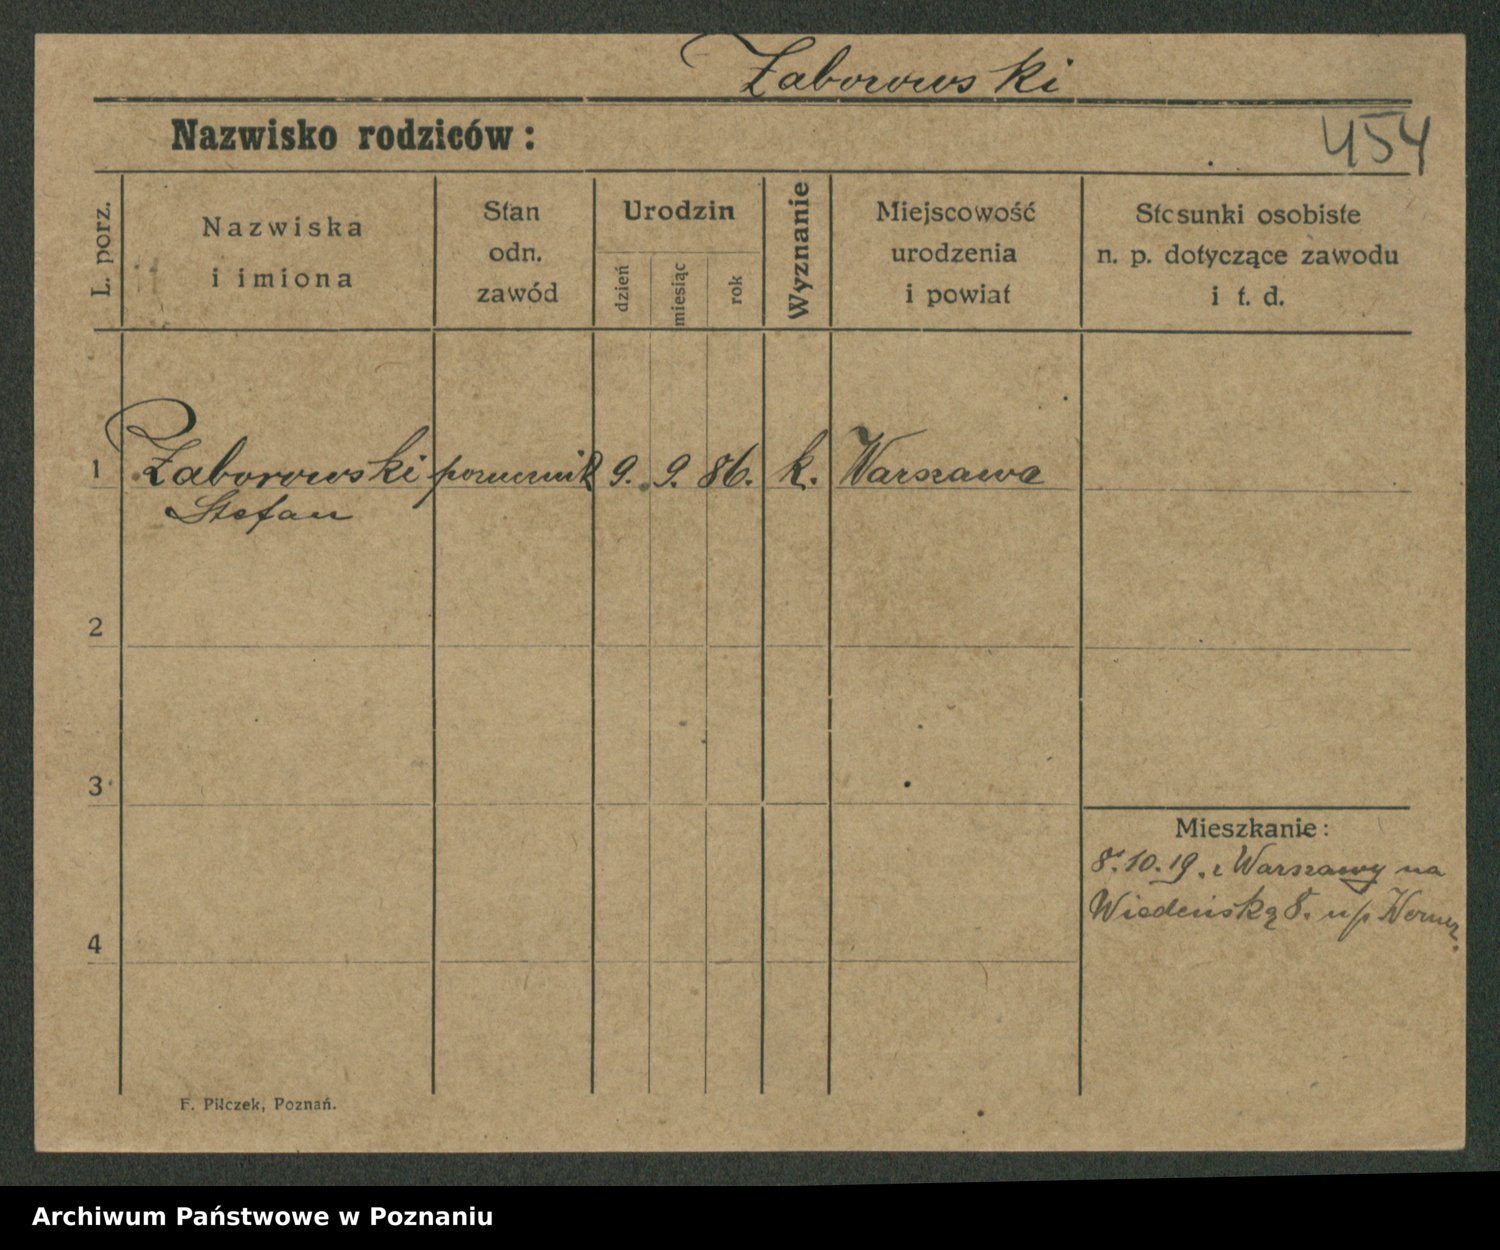 Zaborowski
Nazwisko rodziców:
454
L. porz.
Nazwiska
i imiona
Stan
odn.
zawód
Urodzin
dzień
miesiąc
rok
Wyznanie
Miejscowość
urodzenia
i powiat
Stosunki osobiste
n. p. dotyczące zawodu
i t. d.
1 Zaborowski porucznik 9. 9. 86. k. Warszawa
Stefan
2
3
Mieszkanie:
8.10.19. z Warszawy na
Wiedeńską 8. u/p
4
F. Pilczek, Poznań.
Archiwum Państwowe w Poznaniu